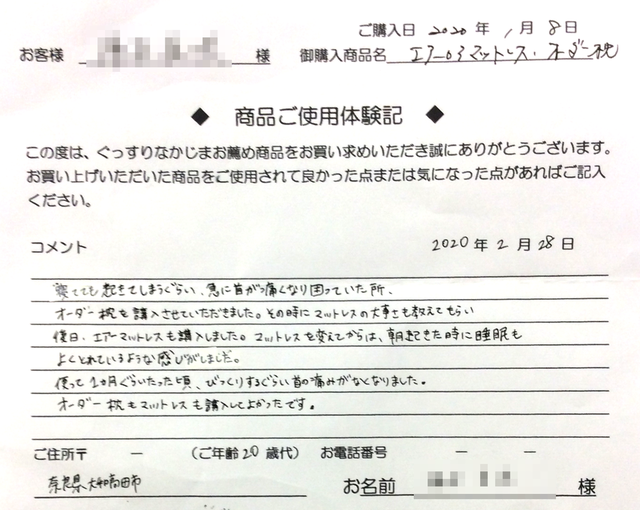 ご購入日 2020年 1月 8日
お客様 様 御購入商品名 エアー03マットレス・オーダー枕
◆ 商品ご使用体験記 ◆
この度は、ぐっすりなかじまお薦め商品をお買い求めいただき誠にありがとうございます。
お買い上げいただいた商品をご使用されて良かった点または気になった点があればご記入
ください。
コメント 2020年2月28日
寝てても起きてしまうぐらい、急に首が痛くなり困っていた所、
オーダー枕を購入させていただきました。その時にマットレスの大事さも教えてもらい
後日、エアーマットレスも購入しました。マットレスを変えてからは、朝起きた時に睡眠も
よくとれているような感じがしました。
使って1ヵ月ぐらいたった頃、びっくりするぐらい首の痛みがなくなりました。
オーダー枕もマットレスも購入してよかったです。
ご住所〒 ー (ご年齢20歳代) お電話番号 ー ー
奈良県大和高田市 お名前 様